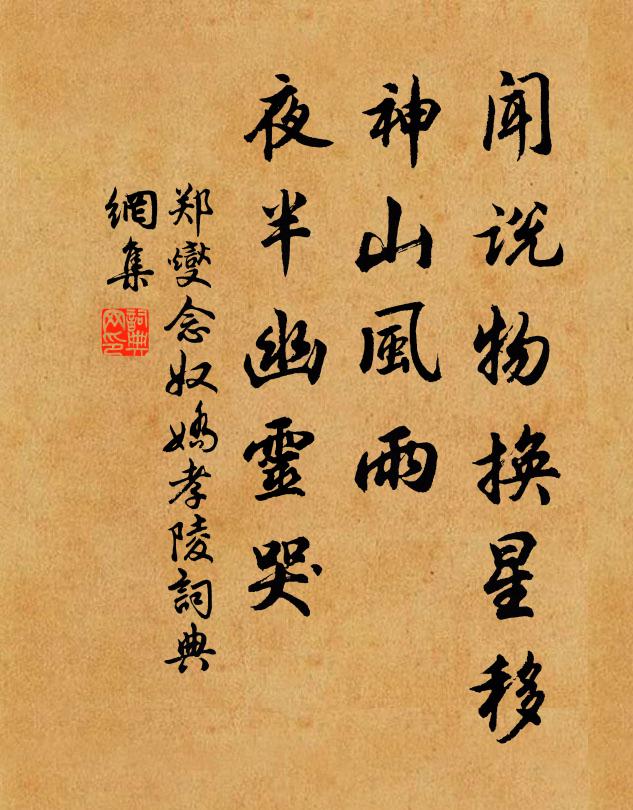 闻说物换星移
神山風雨
夜半幽靈哭
郑燮念奴嬌孝陵詞典
網集
詞典
网印